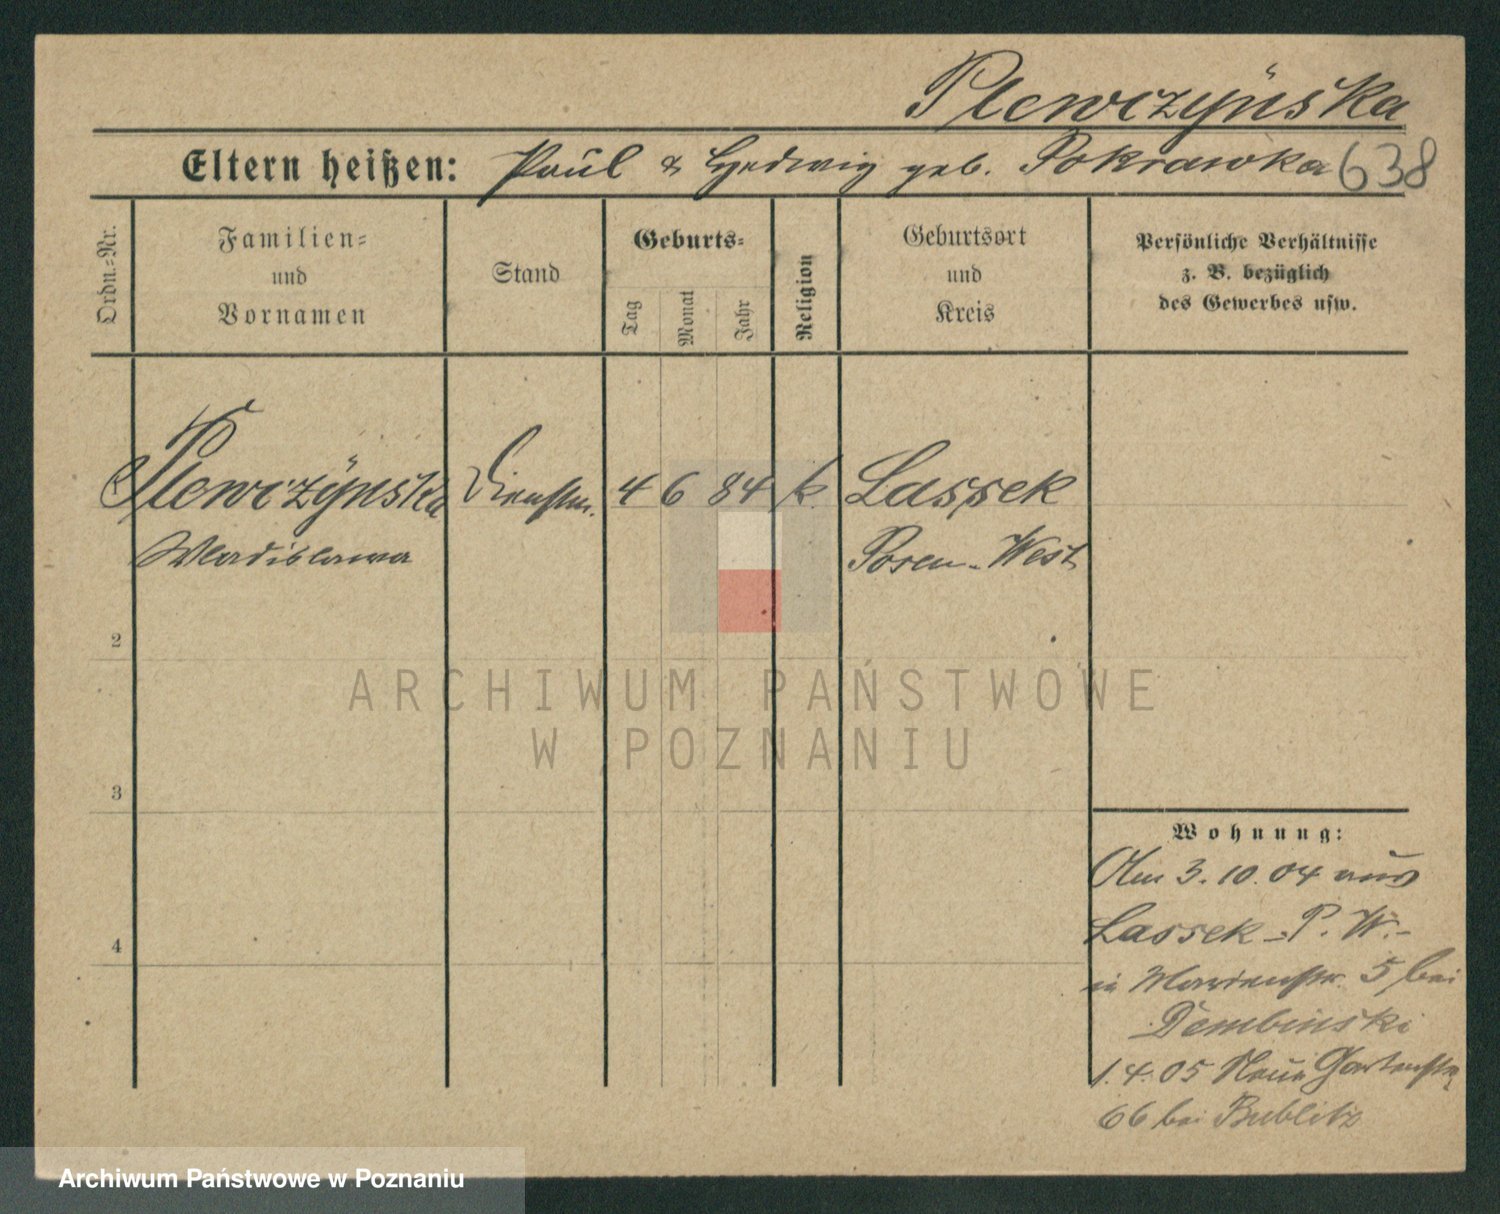 Plewczynska
Eltern heißen: Paul & Hedwig geb. Pokrawka 638
Ordn.=Nr.
Familien=
und
Vornamen
Stand
Geburts=
Tag
Monat
Jahr
Religion
Geburtsort
und
Kreis
Persönliche Verhältnisse
z. B. bezüglich
des Gewerbes usw.
Plewczynska Dienstm. 4 6 84 k. Lassek
Wladislawa Posen-West
2
3
4
Wohnung:
Am 3.10.04 aus
Lassek - P. W. -
in Marienstr. 5 bei
Dembinski
1.4.05 Neue Gartenstr.
66 bei Bublitz
ARCHIWUM PAŃSTWOWE
W POZNANIU
Archiwum Państwowe w Poznaniu